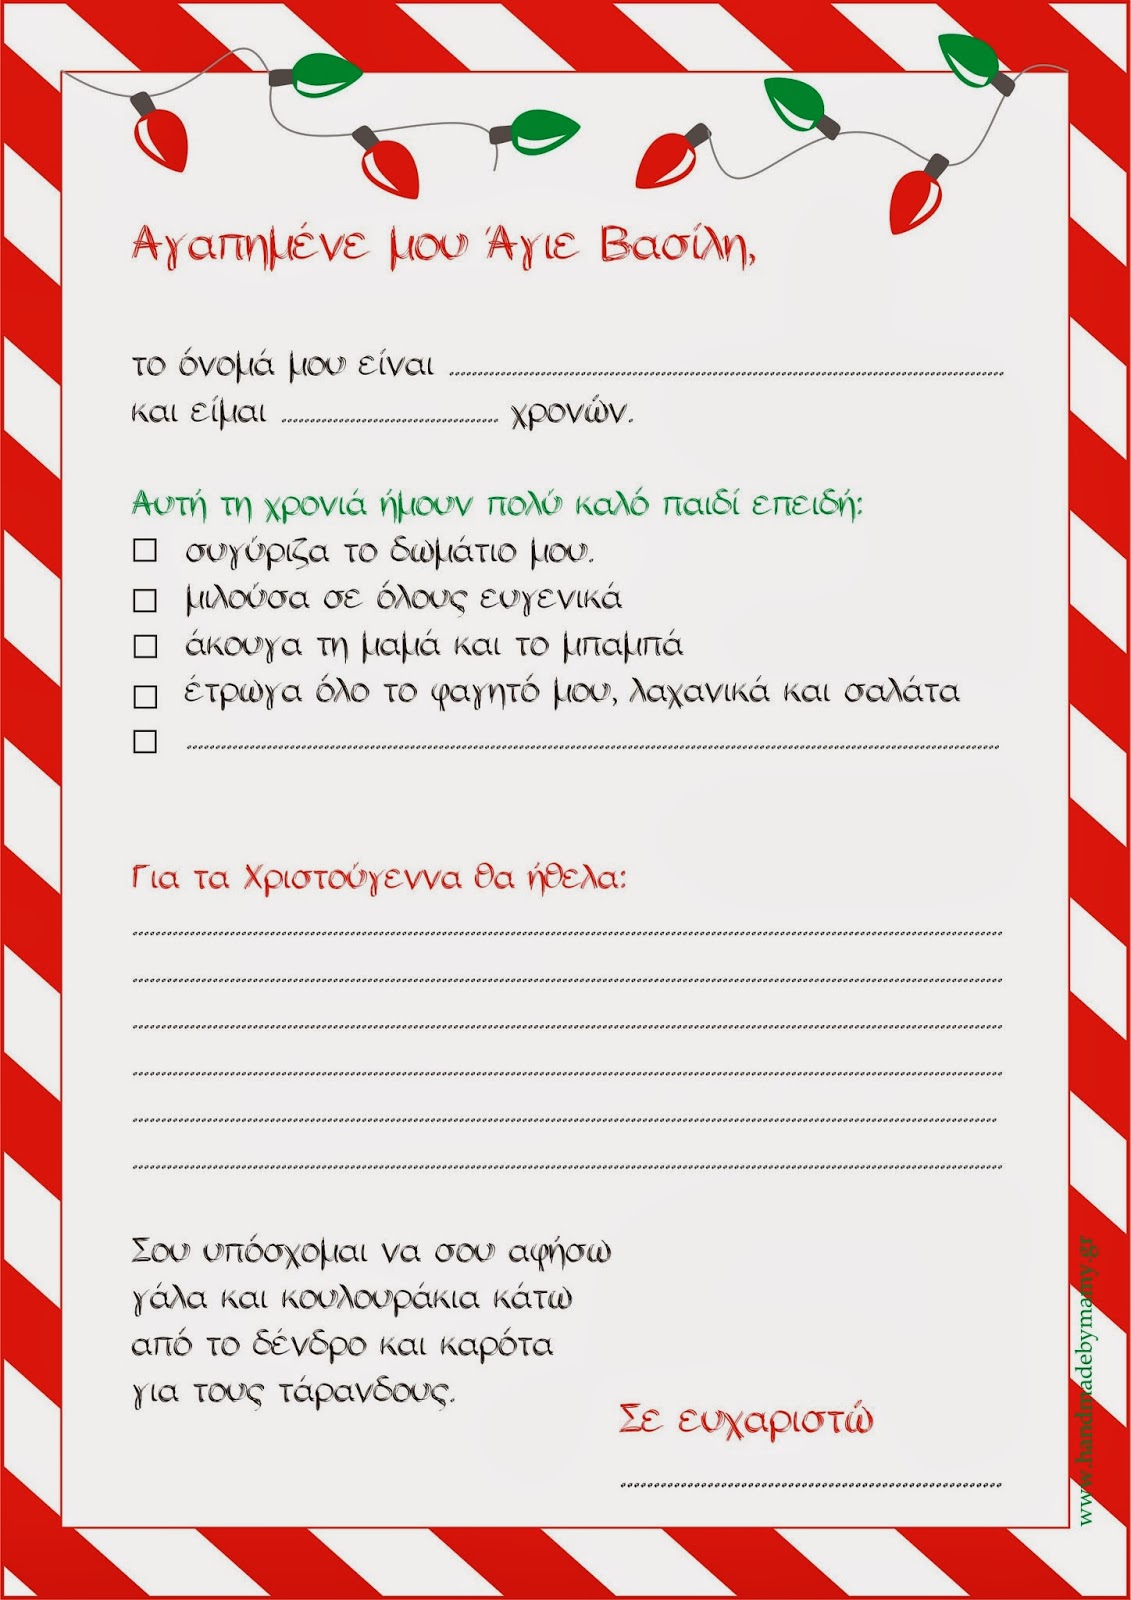 Αγαπημένε μου Άγιε Βασίλη,
το όνομά μου είναι ........................................
και είμαι .................... χρονών.
Αυτή τη χρονιά ήμουν πολύ καλό παιδί επειδή:
☐ συγύριζα το δωμάτιο μου.
☐ μιλούσα σε όλους ευγενικά
☐ άκουγα τη μαμά και το μπαμπά
☐ έτρωγα όλο το φαγητό μου, λαχανικά και σαλάτα
☐ ........................................
Για τα Χριστούγεννα θα ήθελα:
Σου υπόσχομαι να σου αφήσω
γάλα και κουλουράκια κάτω
από το δένδρο και καρότα
για τους τάρανδους.
Σε ευχαριστώ
www.handmadebymamy.gr